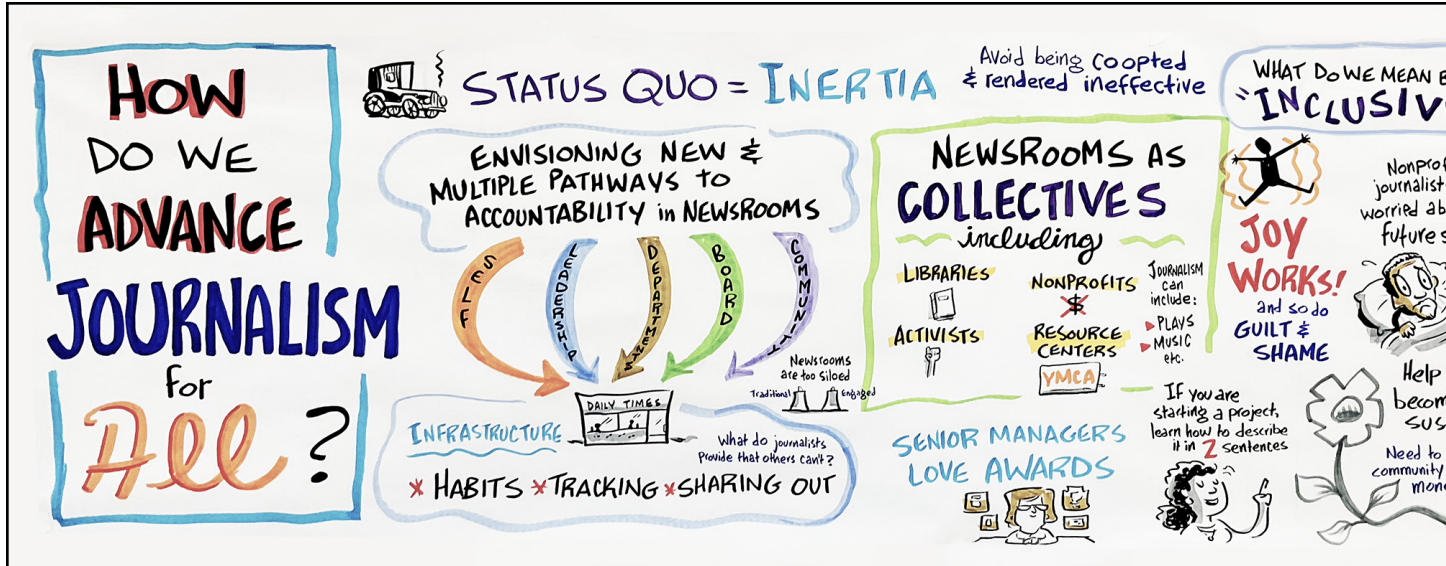 HOW
DO WE
ADVANCE
JOURNALISM
for
All ?
STATUS QUO = INERTIA
Avoid being coopted
& rendered ineffective
ENVISIONING NEW &
MULTIPLE PATHWAYS TO
ACCOUNTABILITY in NEWSROOMS
SELF
LEADERSHIP
DEPARTMENTS
BOARD
COMMUNITY
Newsrooms
are too siloed
Traditional
Engaged
DAILY TIMES
INFRASTRUCTURE
What do journalists
Provide that others can't?
* HABITS * TRACKING * SHARING OUT
NEWSROOMS AS
COLLECTIVES
including
LIBRARIES
ACTIVISTS
NONPROFITS
$
RESOURCE
CENTERS
YMCA
JOURNALISM
can
include:
PLAYS
MUSIC
etc.
SENIOR MANAGERS
LOVE AWARDS
If you are
starting a project,
learn how to describe
it in 2 sentences
WHAT DO WE MEAN
"INCLUSIV
JOY
WORKS!
and so do
GUILT &
SHAME
Nonprof
journalist
worried ab
future s
Help
becom
sus
Need to
community
mon